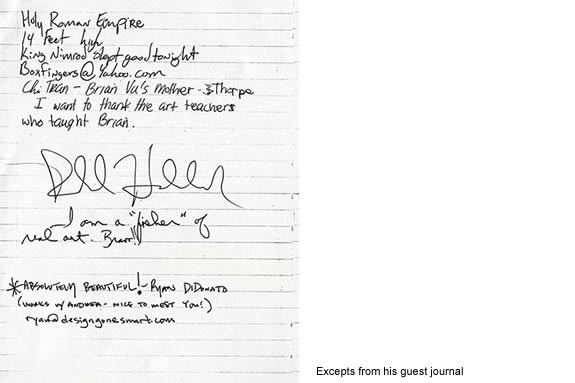 Holy Roman Empire
14 Feet high
King Nimrod slept good tonight
Boxfingers@Yahoo.com
Chi Tran - Brian Vu's Mother - Thorpe
I want to thank the art teachers
who taught Brian.
I am a "fisher" of
real art.
*ABSOLUTELY BEAUTIFUL! - RYAN DIDONATO
(WORKS W/ ANDREA - NICE TO MEET YOU!)
ryan@designgonesmart.com
Excepts from his guest journal